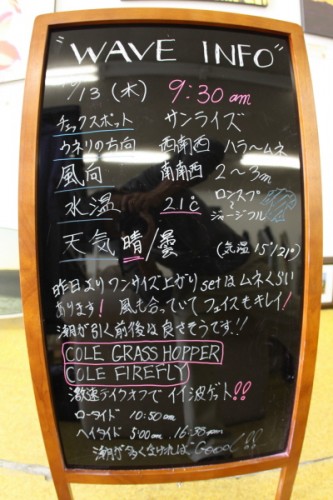 "WAVE INFO"
/13 (木) 9:30 am
チェックスポット サンライズ
ウネリの方向 西南西 ハラ〜ムネ
風向 南南西 2〜3m
水温 21℃ ロンスプ
ジャージフル
天気 晴/曇 (気温 15°/21°)
昨日よりワンサイズ上がり setはムネくらい
あります! 風も合っていてフェイスもキレイ!
潮が引く前後は良さそうです!!
COLE GRASS HOPPER
COLE FIREFLY
激速テイクオフで イイ波ゲット!!
ロータイド 10:50am
ハイタイド 5:00am 16:35pm
潮が多くなければ Good!!